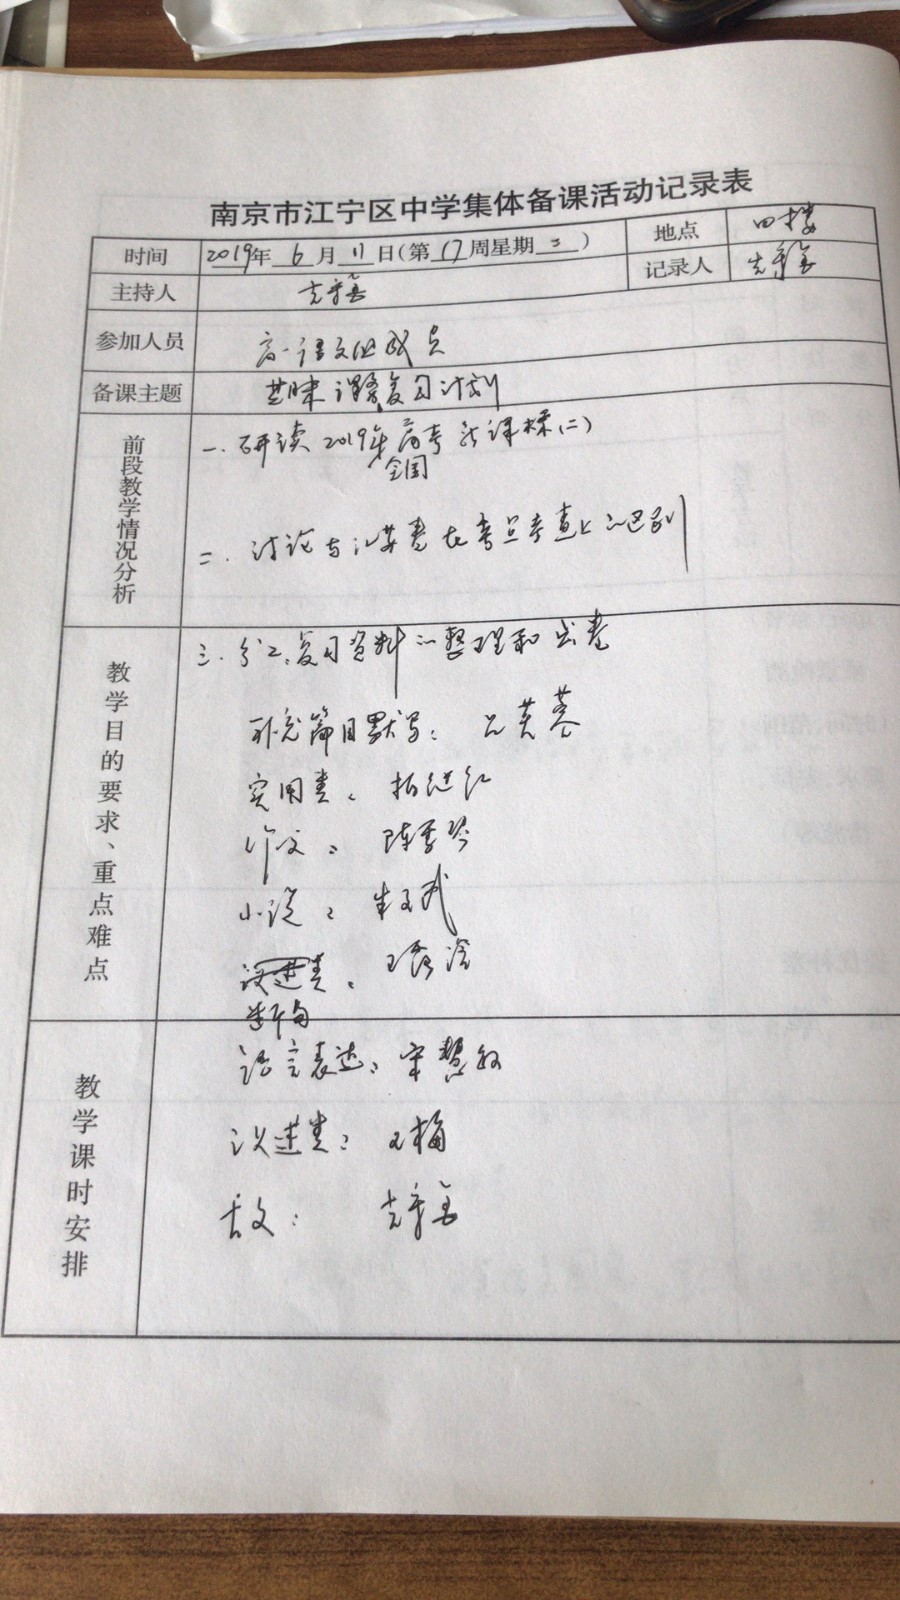 南京市江宁区中学集体备课活动记录表
时间 2019年 6 月 11 日(第 17 周星期 二 ) 地点 四楼
主持人 记录人
参加人员 高一语文组成员
备课主题 期末 复习计划
前段教学情况分析
一. 研读2019年高考 新课标(二)
全国
二. 讨论与江苏卷在考点考查上的区别
教学目的要求、重点难点
三. 分工:复习资料的整理和出卷
补充篇目默写: 吕芙蓉
实用类:
作文: 陈
小说: 朱
断句
教学课时安排
语言表达: 宋慧
议述类: 王梅
古文: